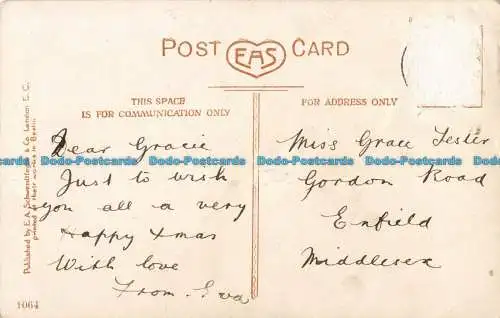 POST EAS CARD
THIS SPACE
IS FOR COMMUNICATION ONLY
FOR ADDRESS ONLY
Dear Gracie
Just to wish
you all a very
Happy Xmas
With love
From Eva
Miss Grace Lester
Gordon Road
Enfield
Middlesex
Published by E.A. Schwerdtfeger & Co. London E.C.
printed at their works in Berlin
1064
Dodo-Postcards Dodo-Postcards Dodo-Postcards Dodo-Postcards
Dodo-Postcards Dodo-Postcards Dodo-Postcards Dodo-Postcards